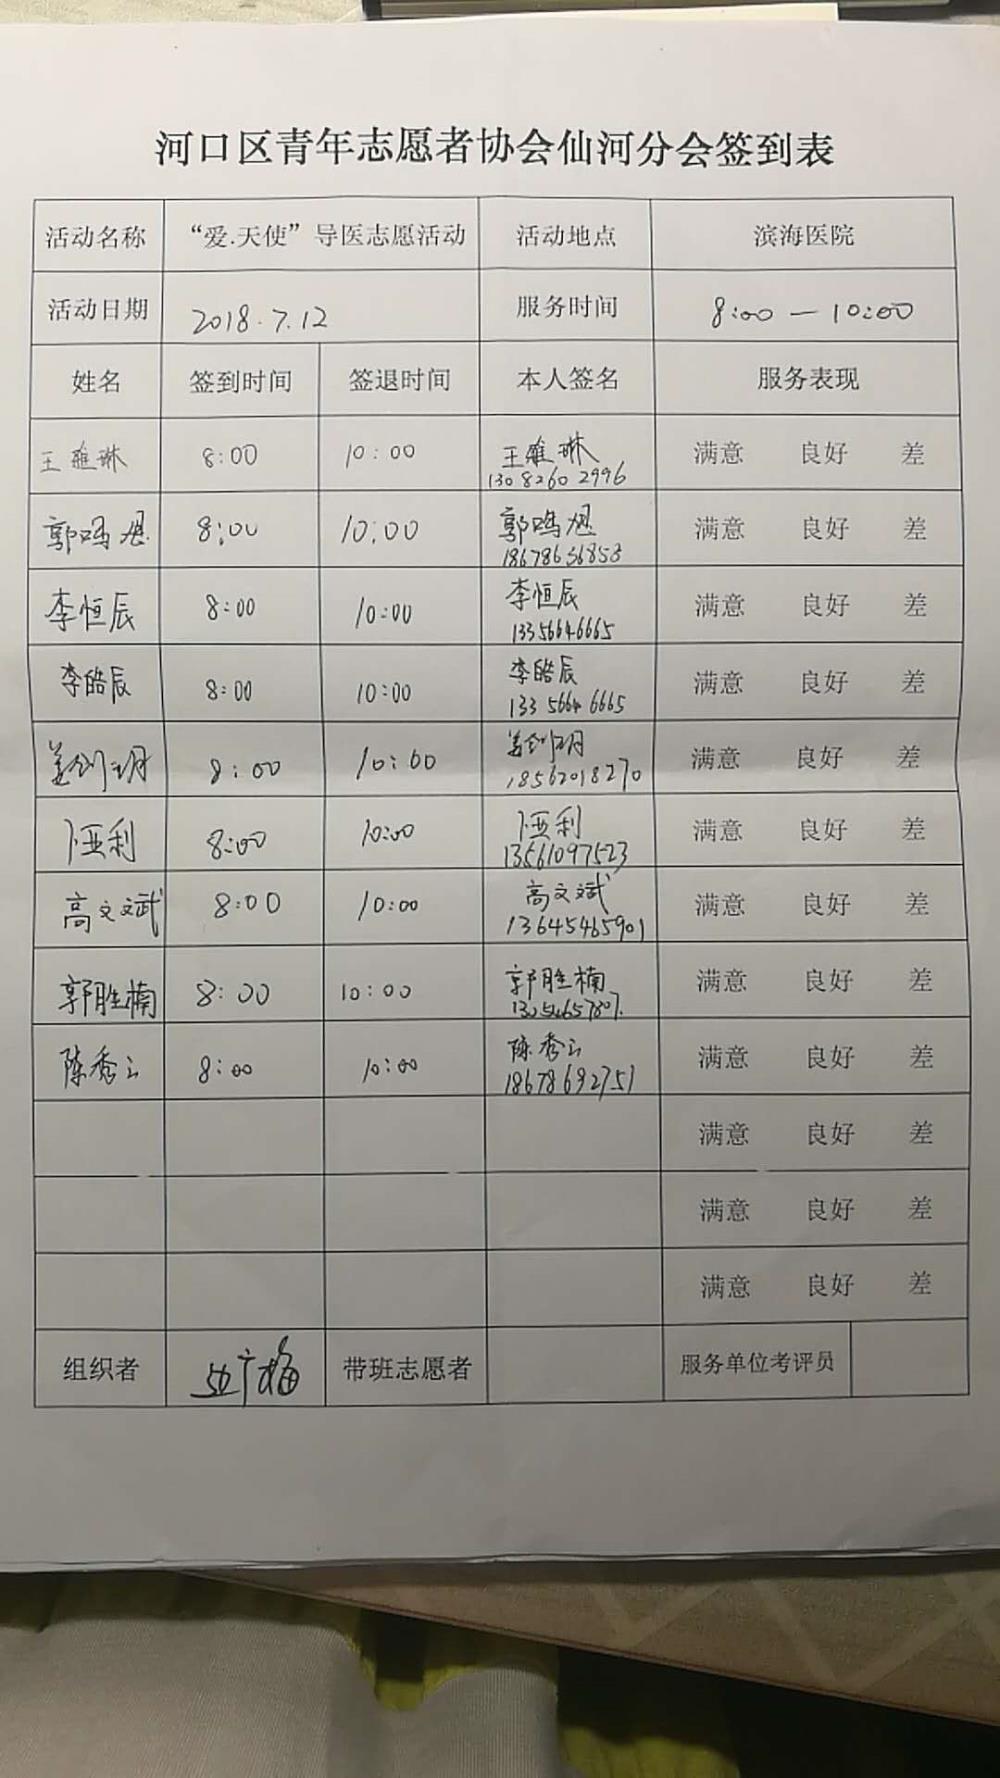 河口区青年志愿者协会仙河分会签到表
活动名称 “爱.天使”导医志愿活动 活动地点 滨海医院
活动日期 2018.7.12 服务时间 8:00 — 10:00
姓名 签到时间 签退时间 本人签名 服务表现
王雅琳 8:00 10:00 王雅琳 满意 良好 差
13082602996
郭鸣旭 8:00 10:00 郭鸣旭 满意 良好 差
18678656853
李恒辰 8:00 10:00 李恒辰 满意 良好 差
13356646665
李皓辰 8:00 10:00 李皓辰 满意 良好 差
133 5664 6665
8:00 10:00 满意 良好 差
18562018270
卞亚利 8:00 10:00 卞亚利 满意 良好 差
13561097523
高文斌 8:00 10:00 高文斌 满意 良好 差
13645465901
郭胜楠 8:00 10:00 郭胜楠 满意 良好 差
陈秀云 8:00 10:00 陈秀云 满意 良好 差
18678692751
满意 良好 差
满意 良好 差
满意 良好 差
组织者 带班志愿者 服务单位考评员